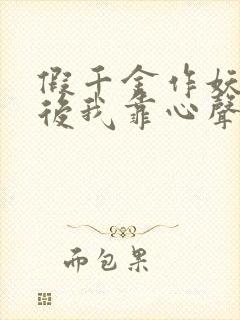 假千金作妖
後我靠心聲
而包果